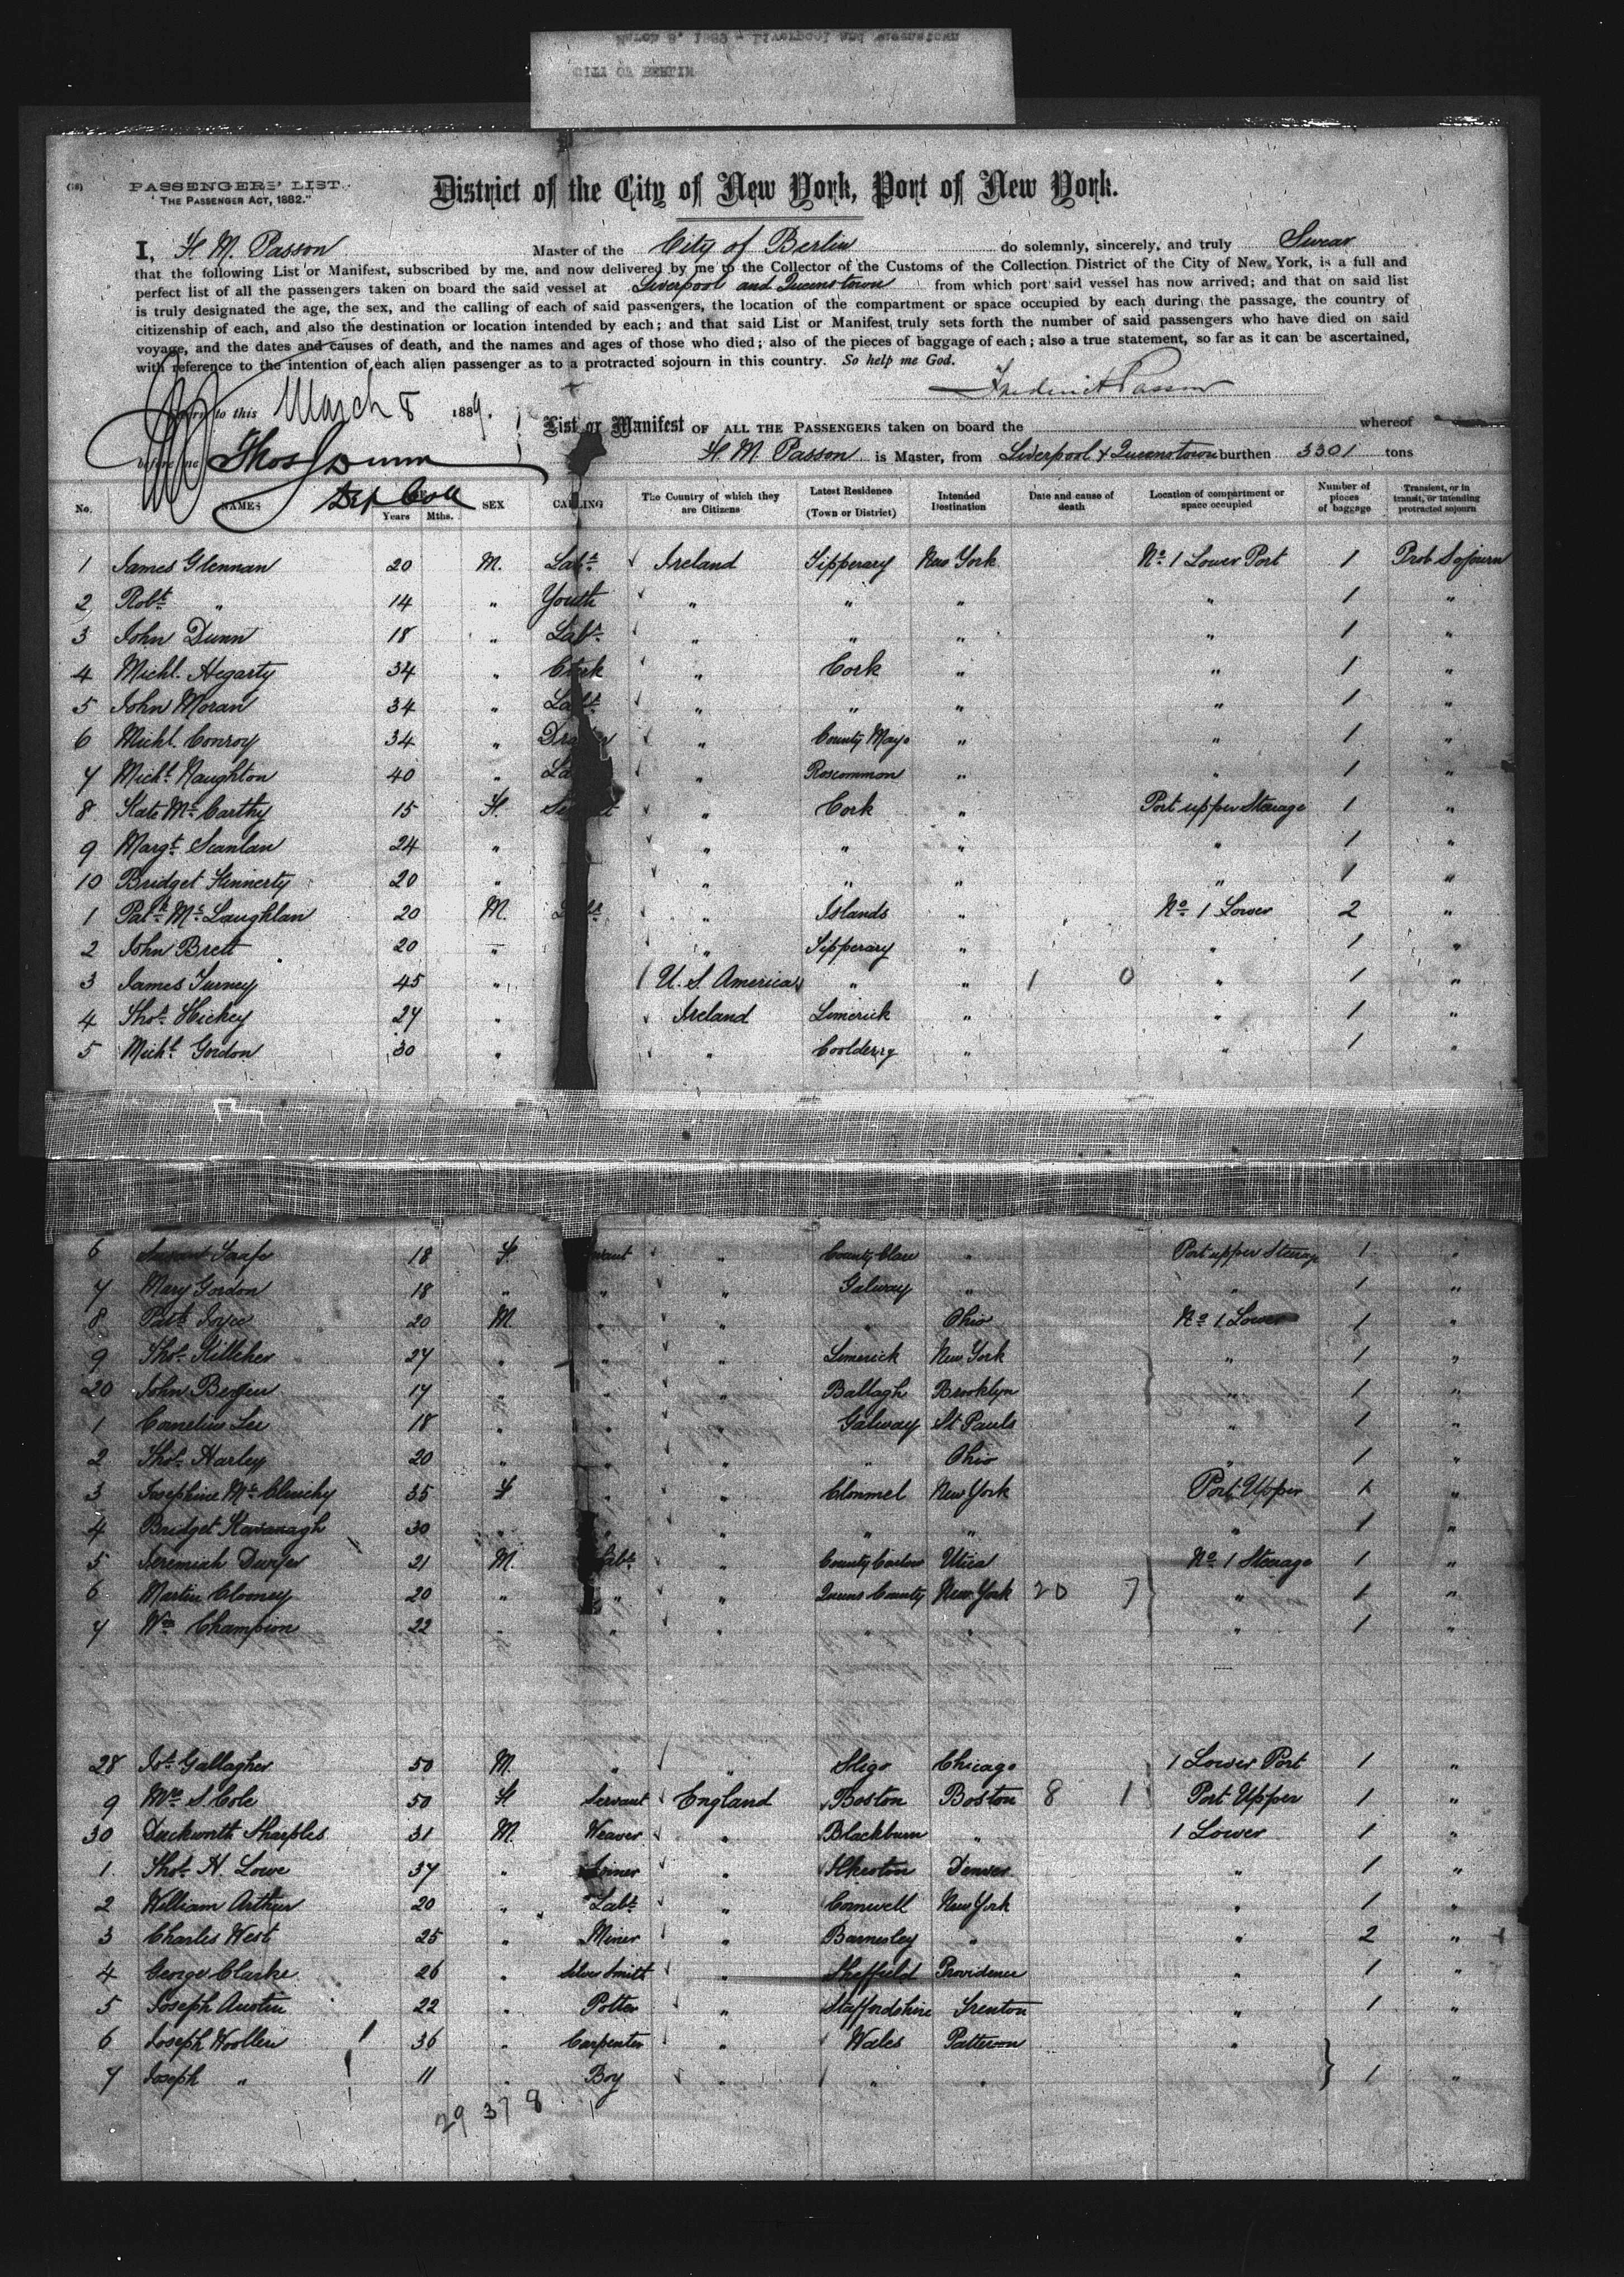 (10)
PASSENGERS' LIST.
"THE PASSENGER ACT, 1882."
District of the City of New York, Port of New York.
I, F M. Passon Master of the City of Berlin do solemnly, sincerely, and truly Swear
that the following List or Manifest, subscribed by me, and now delivered by me to the Collector of the Customs of the Collection District of the City of New York, is a full and
perfect list of all the passengers taken on board the said vessel at Liverpool and Queenstown from which port said vessel has now arrived; and that on said list
is truly designated the age, the sex, and the calling of each of said passengers, the location of the compartment or space occupied by each during the passage, the country of
citizenship of each, and also the destination or location intended by each; and that said List or Manifest truly sets forth the number of said passengers who have died on said
voyage, and the dates and causes of death, and the names and ages of those who died; also of the pieces of baggage of each; also a true statement, so far as it can be ascertained,
with reference to the intention of each alien passenger as to a protracted sojourn in this country. So help me God.
to this March 8 1889.
before me Thos Dunn
Dep Coll
List or Manifest OF ALL THE PASSENGERS taken on board the whereof
F M. Passon is Master, from Liverpool & Queenstown burthen 3301 tons
No. NAMES Years Mths. SEX CALLING The Country of which they are Citizens Latest Residence (Town or District) Intended Destination Date and cause of death Location of compartment or space occupied Number of pieces of baggage Transient, or in transit, or intending protracted sojourn
1 James Glennan 20 M. Labr Ireland Tipperary New York No 1 Lower Port 1 Prot Sojourn
2 Robt " 14 " Youth " " " " 1 "
3 John Dunn 18 " Labr " " " " 1 "
4 Michl. Hegarty 34 " Clerk " Cork " " 1 "
5 John Moran 34 " Labr " " " " 1 "
6 Michl. Conroy 34 " Draper " County Mayo " " 1 "
7 Michl. Naughton 40 " La " Roscommon " " 1 "
8 Kate McCarthy 15 F. Se t " Cork " Port upper Steerage 1 "
9 Margt. Scanlan 24 " " " " " 1 "
10 Bridget Finnerty 20 " " " " " 1 "
1 Patk McLaughlan 20 M. " Islands " No 1 Lower 2 "
2 John Brett 20 " " Tipperary " " 1 "
3 James Turney 45 " U. S. America " " 1 0 " 1 "
4 Thos. Hickey 27 " Ireland Limerick " " 1 "
5 Michl. Gordon 30 " " Coolderry " " 1 "
6 18 F. vant " County Clare " Port upper Steerag 1 "
7 Mary Gordon 18 " " " Galway " " 1 "
8 Patk Joyce 20 M. " " " Ohio No 1 Lower 1 "
9 Thos. Killeher 27 " " " Limerick New York " 1 "
20 John Bergin 17 " " " Ballagh Brooklyn " 1 "
1 Cornelius Lee 18 " " " Galway St Pauls " 1 "
2 Thos. Harley 20 " " " " Ohio " 1 "
3 Josephine McClinchy 35 F " " Clonmel New York Port Upper 1 "
4 Bridget Kavanagh 30 " " " " " 1 "
5 Jeremiah Dwyer 21 M. Labr " County Carlow Utica No 1 Steerage 1 "
6 Martin Clooney 20 " " " Queens County New York 20 7 " 1 "
7 Wm Champion 22 " " " " " " 1 "
28 Jos. Gallagher 50 M. " " Sligo Chicago 1 Lower Port 1 "
9 Mrs S. Cole 50 F Servant England Boston Boston 8 1 Port Upper 1 "
30 Duckworth Sharples 31 M. Weaver " Blackburn " 1 Lower 1 "
1 Thos. H. Lowe 37 " " Ilkeston Denver " 1 "
2 William Arthur 20 " Labr " Cornwell New York " 1 "
3 Charles West 25 " Miner " Barnesley " " 2 "
4 George Clarke 26 " Silver Smith " Sheffield Providence " 1 "
5 Joseph Austin 22 " Potter " Staffordshire Trenton " 1 "
6 Joseph Woollen 36 " Carpenter " Wales Patterson "
7 Joseph " 11 " Boy " " " 1 "
29 37 8